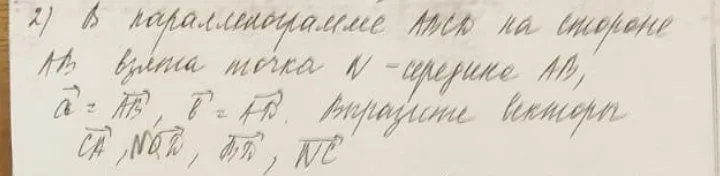 2) В параллелограмме ABCD на стороне
AB взята точка N - середина AB,
a⃗ = AB⃗, b⃗ = AD⃗. Выразите векторы
CA⃗, BD⃗, NC⃗